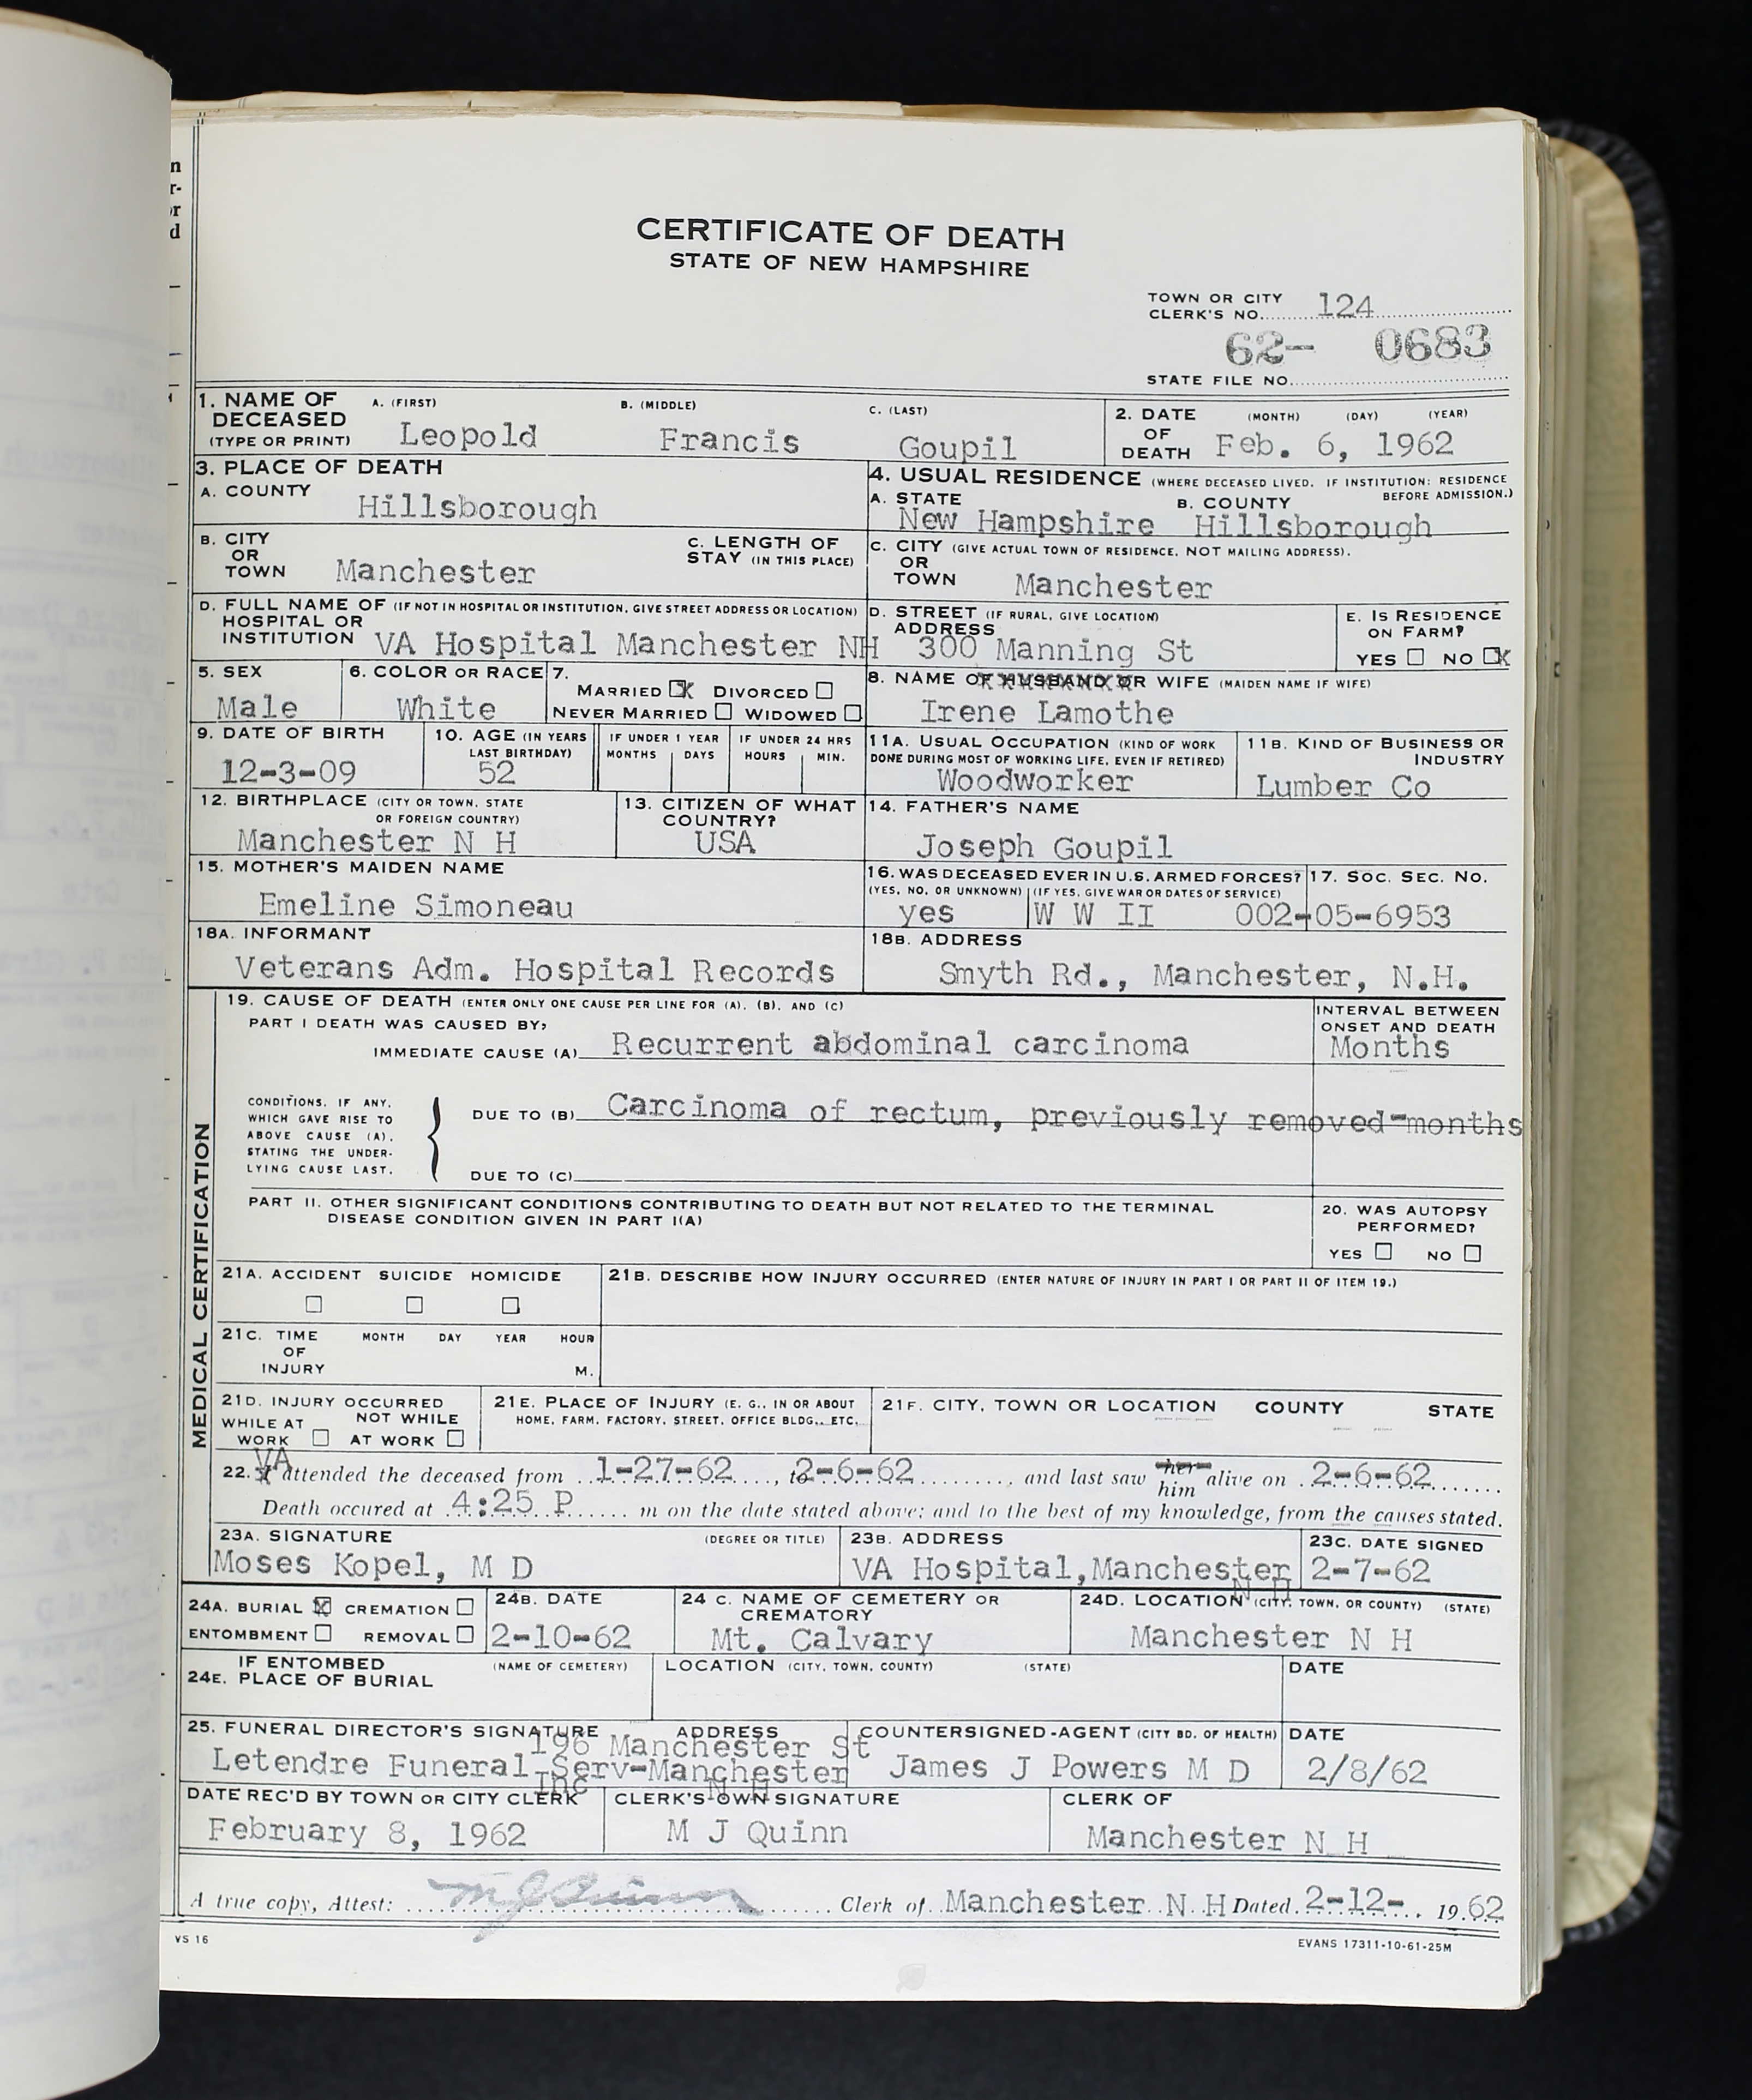 n
r-
or
d
CERTIFICATE OF DEATH
STATE OF NEW HAMPSHIRE
TOWN OR CITY
CLERK'S NO. 124
62- 0683
STATE FILE NO.
1. NAME OF DECEASED (TYPE OR PRINT) A. (FIRST) B. (MIDDLE) C. (LAST)
Leopold Francis Goupil
2. DATE OF DEATH (MONTH) (DAY) (YEAR)
Feb. 6, 1962
3. PLACE OF DEATH
A. COUNTY
Hillsborough
4. USUAL RESIDENCE (WHERE DECEASED LIVED. IF INSTITUTION: RESIDENCE BEFORE ADMISSION.)
A. STATE B. COUNTY
New Hampshire Hillsborough
B. CITY OR TOWN Manchester
C. LENGTH OF STAY (IN THIS PLACE)
C. CITY (GIVE ACTUAL TOWN OF RESIDENCE, NOT MAILING ADDRESS).
OR TOWN Manchester
D. FULL NAME OF (IF NOT IN HOSPITAL OR INSTITUTION, GIVE STREET ADDRESS OR LOCATION)
HOSPITAL OR
INSTITUTION VA Hospital Manchester NH
D. STREET (IF RURAL, GIVE LOCATION)
ADDRESS
300 Manning St
E. IS RESIDENCE ON FARM?
YES NO X
5. SEX
Male
6. COLOR OR RACE
White
7.
MARRIED X DIVORCED
NEVER MARRIED WIDOWED
8. NAME OF HUSBAND OR WIFE (MAIDEN NAME IF WIFE)
Irene Lamothe
9. DATE OF BIRTH
12-3-09
10. AGE (IN YEARS LAST BIRTHDAY)
52
IF UNDER 1 YEAR
MONTHS DAYS
IF UNDER 24 HRS
HOURS MIN.
11A. USUAL OCCUPATION (KIND OF WORK DONE DURING MOST OF WORKING LIFE, EVEN IF RETIRED)
Woodworker
11B. KIND OF BUSINESS OR INDUSTRY
Lumber Co
12. BIRTHPLACE (CITY OR TOWN, STATE OR FOREIGN COUNTRY)
Manchester N H
13. CITIZEN OF WHAT COUNTRY?
USA
14. FATHER'S NAME
Joseph Goupil
15. MOTHER'S MAIDEN NAME
Emeline Simoneau
16. WAS DECEASED EVER IN U.S. ARMED FORCES?
(YES, NO, OR UNKNOWN) (IF YES, GIVE WAR OR DATES OF SERVICE)
yes W W II
17. SOC. SEC. NO.
002-05-6953
18A. INFORMANT
Veterans Adm. Hospital Records
18B. ADDRESS
Smyth Rd., Manchester, N.H.
MEDICAL CERTIFICATION
19. CAUSE OF DEATH (ENTER ONLY ONE CAUSE PER LINE FOR (A), (B), AND (C)
PART I DEATH WAS CAUSED BY;
IMMEDIATE CAUSE (A) Recurrent abdominal carcinoma
INTERVAL BETWEEN ONSET AND DEATH
Months
CONDITIONS, IF ANY,
WHICH GAVE RISE TO
ABOVE CAUSE (A),
STATING THE UNDER-
LYING CAUSE LAST.
DUE TO (B) Carcinoma of rectum, previously removed-months
DUE TO (C)
PART II. OTHER SIGNIFICANT CONDITIONS CONTRIBUTING TO DEATH BUT NOT RELATED TO THE TERMINAL
DISEASE CONDITION GIVEN IN PART I(A)
20. WAS AUTOPSY PERFORMED?
YES NO
21A. ACCIDENT SUICIDE HOMICIDE
21B. DESCRIBE HOW INJURY OCCURRED (ENTER NATURE OF INJURY IN PART I OR PART II OF ITEM 19.)
21C. TIME OF INJURY MONTH DAY YEAR HOUR
M.
21D. INJURY OCCURRED
WHILE AT WORK NOT WHILE AT WORK
21E. PLACE OF INJURY (E. G., IN OR ABOUT HOME, FARM, FACTORY, STREET, OFFICE BLDG., ETC.
21F. CITY, TOWN OR LOCATION COUNTY STATE
VA
22. I attended the deceased from 1-27-62, to 2-6-62, and last saw her him alive on 2-6-62
Death occured at 4:25 P m on the date stated above; and to the best of my knowledge, from the causes stated.
23A. SIGNATURE (DEGREE OR TITLE)
Moses Kopel, M D
23B. ADDRESS
VA Hospital, Manchester N H
23C. DATE SIGNED
2-7-62
24A. BURIAL X CREMATION
ENTOMBMENT REMOVAL
24B. DATE
2-10-62
24 C. NAME OF CEMETERY OR CREMATORY
Mt. Calvary
24D. LOCATION (CITY, TOWN, OR COUNTY) (STATE)
Manchester N H
IF ENTOMBED
24E. PLACE OF BURIAL
(NAME OF CEMETERY) LOCATION (CITY, TOWN, COUNTY) (STATE) DATE
25. FUNERAL DIRECTOR'S SIGNATURE ADDRESS
196 Manchester St
Letendre Funeral Serv-Manchester
Inc N H
COUNTERSIGNED-AGENT (CITY BD. OF HEALTH)
James J Powers M D
DATE
2/8/62
DATE REC'D BY TOWN OR CITY CLERK
February 8, 1962
CLERK'S OWN SIGNATURE
M J Quinn
CLERK OF
Manchester N H
A true copy, Attest: M J Quinn Clerk of Manchester N H Dated 2-12- 1962
VS 16
EVANS 17311-10-61-25M